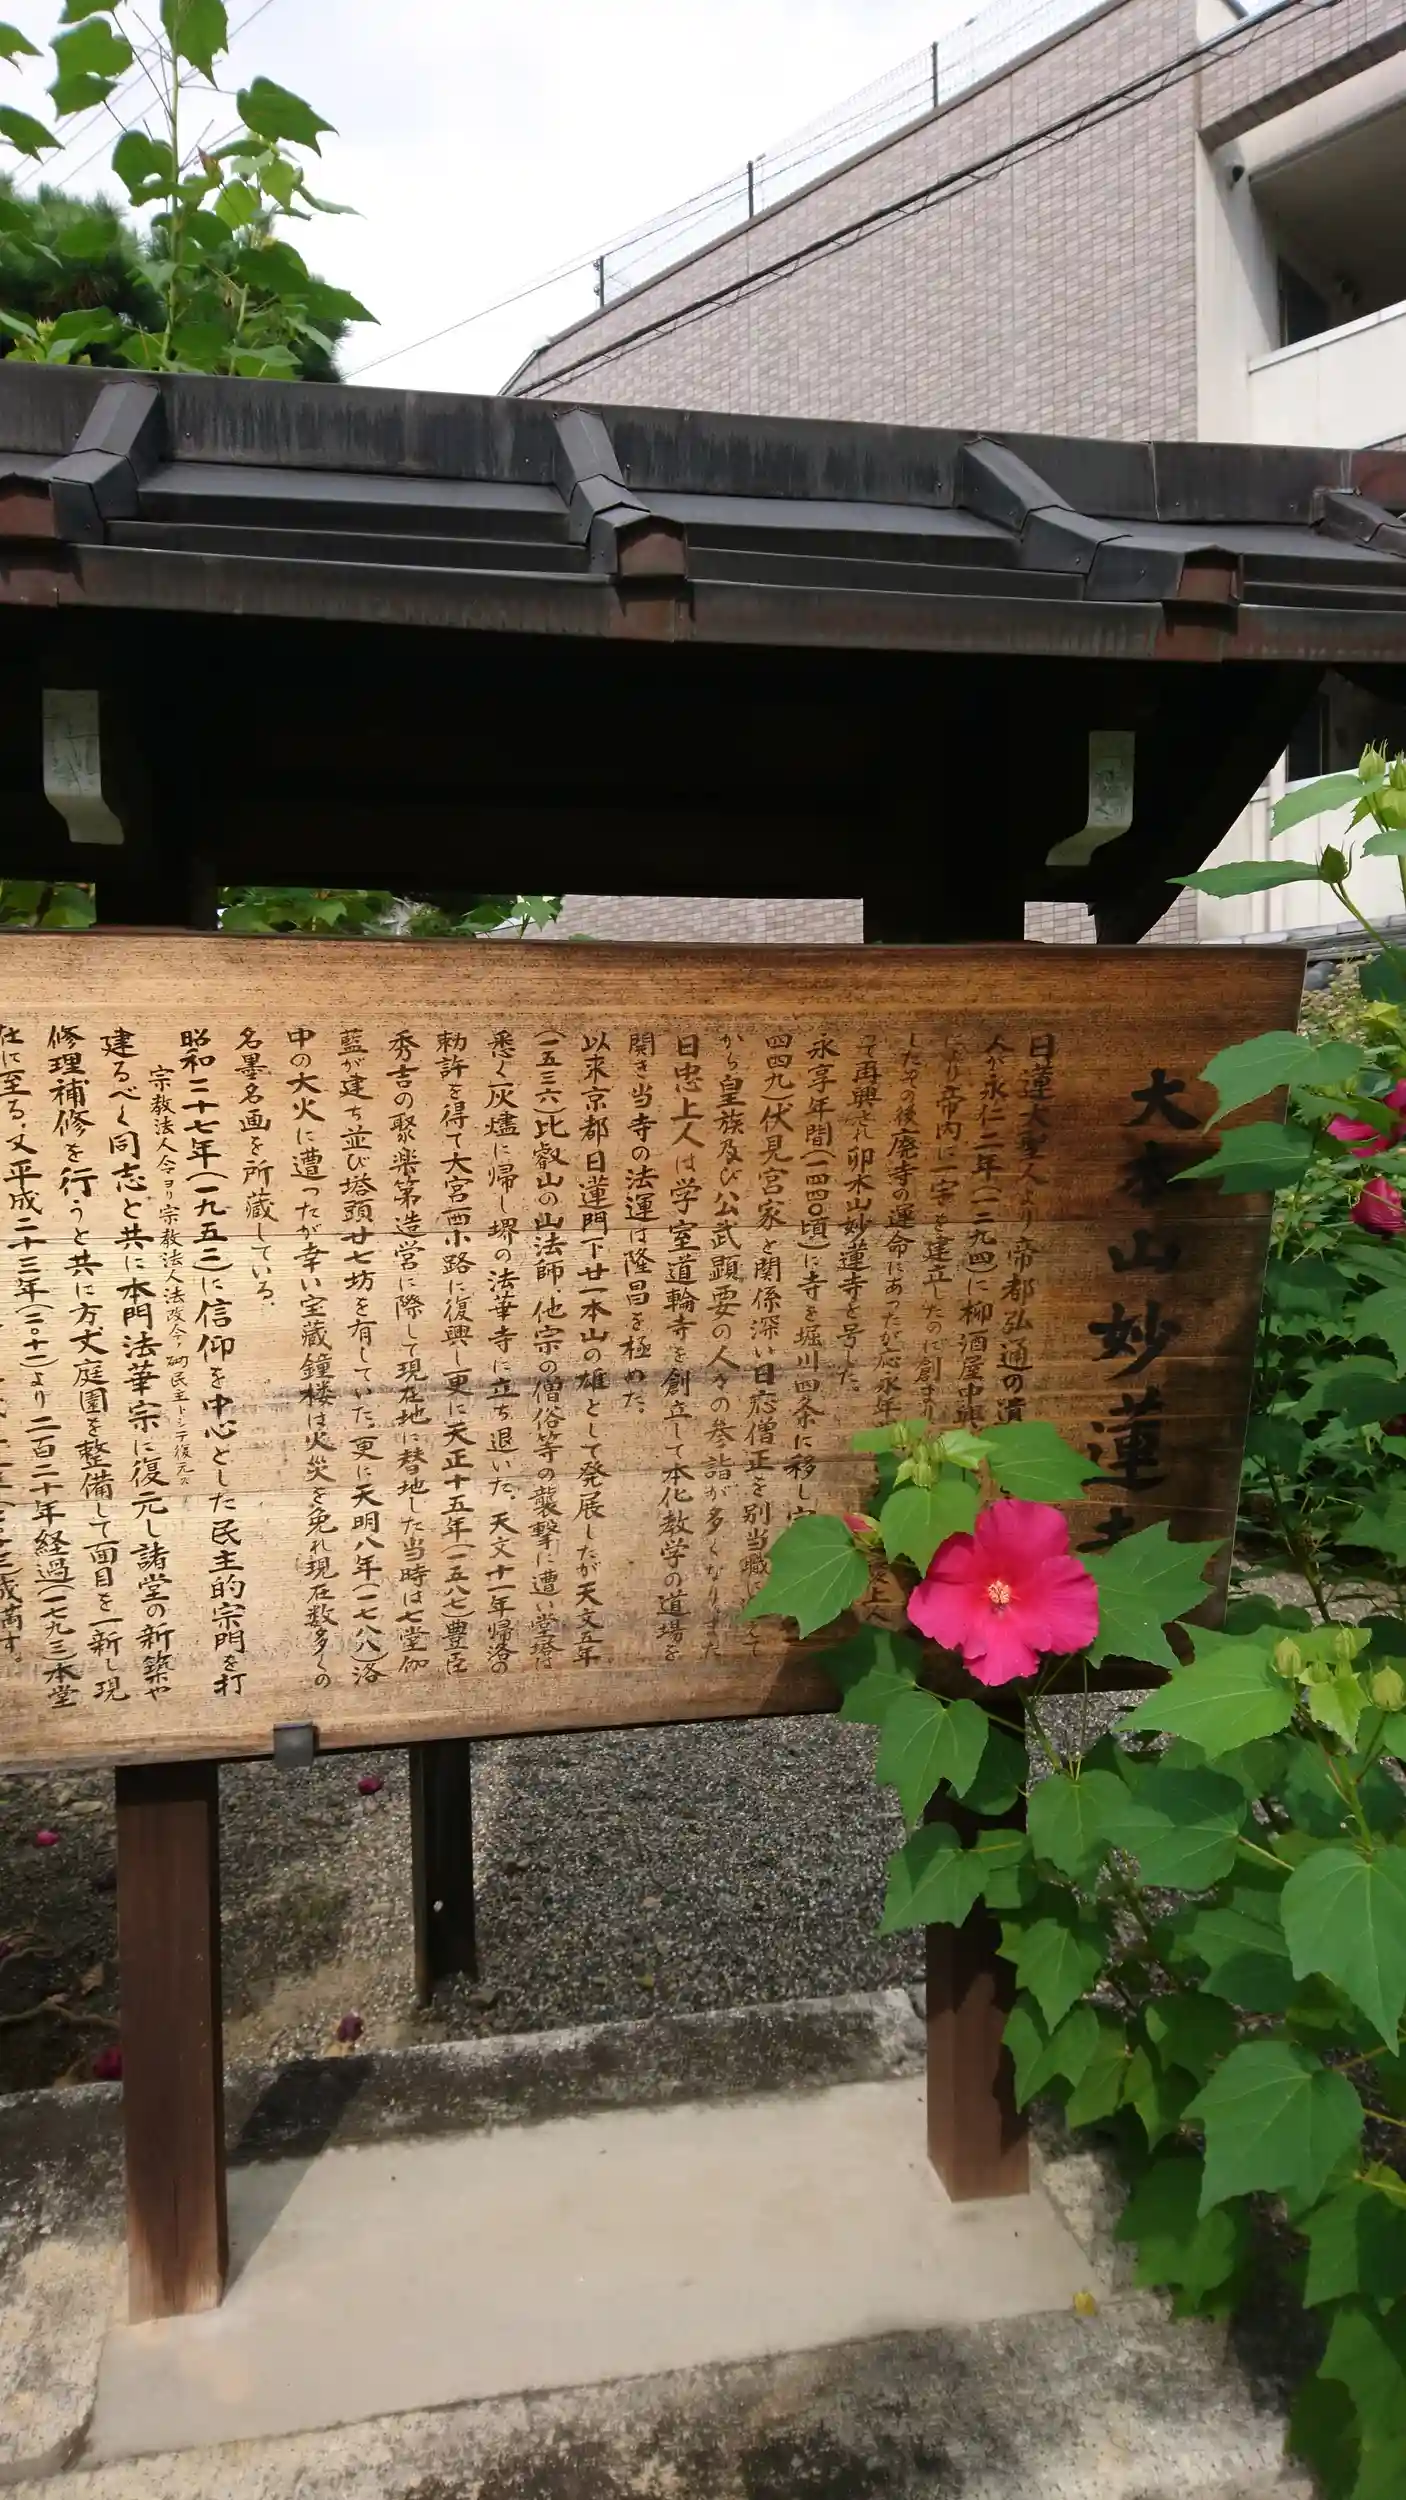 大本山妙蓮
日蓮大聖人より帝都弘通の遺
人が永仁二年(一二九四)に柳酒屋中興
により帝内に一宗を建立したのに創まり
したその後廃寺の運命にあったが応永年
て再興され卯木山妙蓮寺と号した。
永享年間(一四四〇頃)に寺を堀川四条に移し
四四九)伏見宮家と関係深い日応僧正を別当職に
から皇族及び公武顕要の人々の参詣が多くなりまた
日忠上人は学室道輪寺を創立して本化教学の道場を
開き当寺の法運は隆昌を極めた。
以来京都日蓮門下廿一本山の雄として発展したが天文五年
(一五三六)比叡山の山法師、他宗の僧俗等の襲撃に遭い堂塔は
悉く灰燼に帰し堺の法華寺に立ち退いた。天文十一年帰洛の
勅許を得て大宮西北小路に復興し更に天正十五年(一五八七)豊臣
秀吉の聚楽第造営に際して現在地に替地した当時は七堂伽
藍が建ち並び塔頭廿七坊を有していた。更に天明八年(一七八八)洛
中の大火に遭ったが幸い宝蔵鐘楼は火災を免れ現在数多くの
名墨名画を所蔵している。
昭和二十七年(一九五二)に信仰を中心とした民主的宗門を打
宗教法人令ヨリ宗教法人法改令
建るべく同志と共に本門法華宗に復元し諸堂の新築や
修理補修を行うと共に方丈庭園を整備して面目を一新し現
在に至る。又平成二十三年(二〇十一)より二百二十年経過(一七九三)本堂